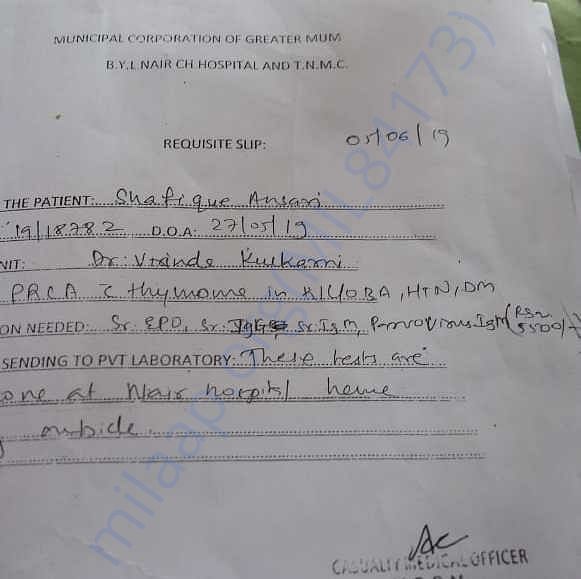 MUNICIPAL CORPORATION OF GREATER MUM
B.Y.L.NAIR CH HOSPITAL AND T.N.M.C.
REQUISITE SLIP:
05/06/19
THE PATIENT: Shafique Ansari
19/18782 D.O.A: 27/05/19
NIT: Dr. Vrinda Kulkarni
PRCA c thymoma in K/C/O BA, HTN, DM
ON NEEDED: Sr. EPO, Sr. Sr. IgM, Parvovirus IgM (Rs. 5500/-)
SENDING TO PVT LABORATORY: These tests are
one at Nair hospital hence
outside.
CASUALTY MEDICAL OFFICER
milaap.org(MIL84173)